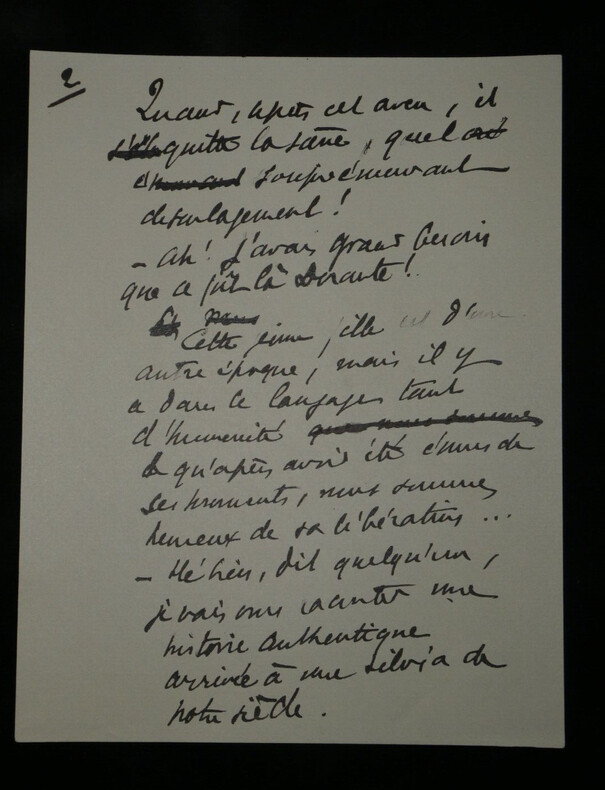 2
Quand, après cet aveu, il
quitte la scène, quel
soupir émouvant
de soulagement !
- Ah ! j'avais grand besoin
que ce fût là Dorante !
Et nous
Cette jeune fille est d'une
autre époque, mais il y
a dans le langage tant
d'humanité que nous sommes
qu'après avoir été émus de
ses tourments, nous sommes
heureux de sa libération ...
- Hé bien, dit quelqu'un,
je vais vous raconter une
histoire authentique
arrivée à une Silvia de
notre siècle.